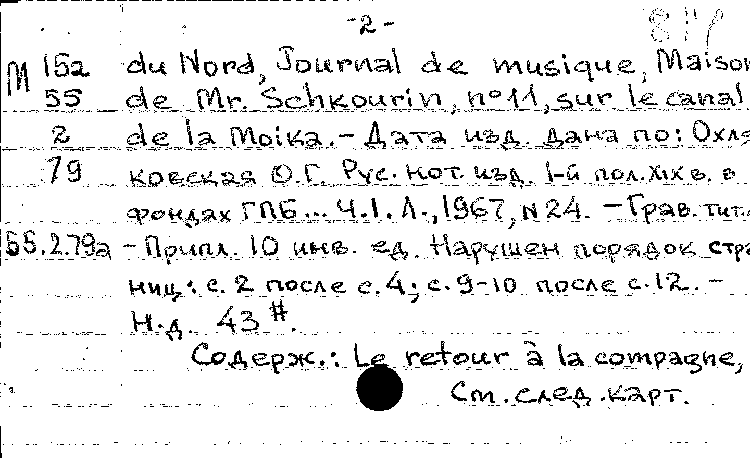 -2-
M 15a du Nord, Journal de musique, Maison
55 de Mr. Schkourin, n°11, sur le canal
2 de la Moika. - Дата изд. дана по: Охля
79 ковская О.Г. Рус. нот. изд. 1-й пол. XIX в. в
фондах ГПБ... Ч.1. Л., 1967, N 24. - Грав. тит.л
55.2.79а - Припл. 10 инв. ед. Нарушен порядок стра
ниц: с. 2 после с.4; с.9-10 после с.12. -
Н.д. 43 #.
Содерж.: Le retour à la compagne,
См. след. карт.